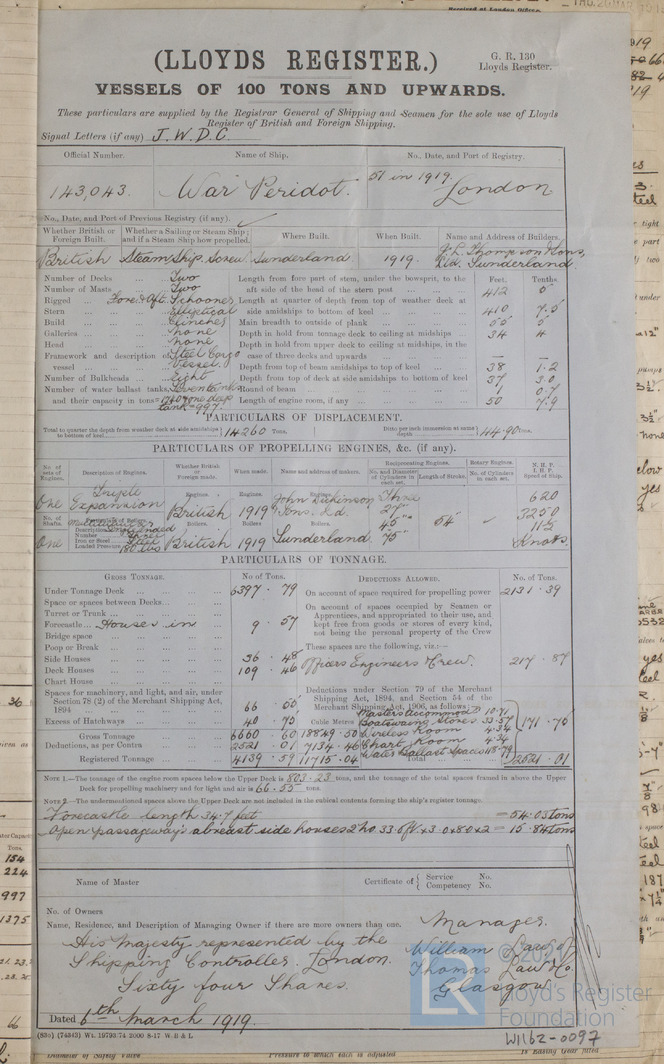 (LLOYDS REGISTER.)
G. R. 130
Lloyds Register.
VESSELS OF 100 TONS AND UPWARDS.
These particulars are supplied by the Registrar General of Shipping and Seamen for the sole use of Lloyds
Register of British and Foreign Shipping.
Signal Letters (if any) J. W. D. C.
Official Number. Name of Ship. No., Date, and Port of Registry.
143,043. War Peridot. 51 in 1919. London
No., Date, and Port of Previous Registry (if any).
Whether British or Foreign Built. Whether a Sailing or Steam Ship; and if a Steam Ship how propelled. Where Built. When Built. Name and Address of Builders.
British Steam Ship. Screw Sunderland 1919. J. L. Thompson & Sons, Ltd. Sunderland
Number of Decks Two Length from fore part of stem, under the bowsprit, to the aft side of the head of the stern post Feet. Tenths. 412 0
Number of Masts Two
Rigged Fore & Aft. Schooner Length at quarter of depth from top of weather deck at side amidships to bottom of keel 410 7.5
Stern Elliptical
Build Clincher Main breadth to outside of plank 55 5
Galleries None Depth in hold from tonnage deck to ceiling at midships 34 4
Head None Depth in hold from upper deck to ceiling at midships, in the case of three decks and upwards — —
Framework and description of vessel Steel Cargo Vessel.
Depth from top of beam amidships to top of keel 38 1.2
Number of Bulkheads Eight Depth from top of deck at side amidships to bottom of keel 37 3.0
Number of water ballast tanks, and their capacity in tons Seven tanks one deep tank = 997. Round of beam 1 0.7
Length of engine room, if any 50 7.9
PARTICULARS OF DISPLACEMENT.
Total to quarter the depth from weather deck at side amidships to bottom of keel 14260 Tons. Ditto per inch immersion at same depth 44.90 Tons.
PARTICULARS OF PROPELLING ENGINES, &c. (if any).
No. of sets of Engines. Description of Engines. Whether British or Foreign made. When made. Name and address of makers. Reciprocating Engines. No. and Diameter of Cylinders in each set. Length of Stroke. Rotary Engines. No. of Cylinders in each set. N. H. P. I. H. P. Speed of Ship.
One Triple Expansion Engines. British Engines. 1919 Engines. John Dickinson & Sons. Ld. Three 27" 45" 75" 54" 620 3250 11½ Knots.
No. of Shafts. Description Number Iron or Steel Loaded Pressure
One Steel 180 lbs Boilers British Boilers 1919 Boilers Sunderland
PARTICULARS OF TONNAGE.
GROSS TONNAGE. No of Tons. DEDUCTIONS ALLOWED. No. of Tons.
Under Tonnage Deck 6397.79 On account of space required for propelling power 2131.39
Space or spaces between Decks
Turret or Trunk
Forecastle Houses in 9.57
On account of spaces occupied by Seamen or Apprentices, and appropriated to their use, and kept free from goods or stores of every kind, not being the personal property of the Crew
Bridge space
Poop or Break These spaces are the following, viz:—
Side Houses 36.48
Deck Houses 109.46 Officers Engineers & Crew. 217.87
Chart House
Spaces for machinery, and light, and air, under Section 78 (2) of the Merchant Shipping Act, 1894 66.55
Deductions under Section 79 of the Merchant Shipping Act, 1894, and Section 54 of the Merchant Shipping Act, 1906, as follows:
Masters accommodn 10.71
Excess of Hatchways 40.75 Cubic Metres Boatswains Stores 33.57
Gross Tonnage 6660.60 18849.50 Wireless Room 4.34
Deductions, as per Contra 2521.01 7134.46 Chart Room 4.34
Water Ballast Spaces 118.79 171.75
Registered Tonnage 4139.59 11715.04 Total 2521.01
NOTE 1.—The tonnage of the engine room spaces below the Upper Deck is 803.23 tons, and the tonnage of the total spaces framed in above the Upper
Deck for propelling machinery and for light and air is 66.55 tons.
NOTE 2.—The undermentioned spaces above the Upper Deck are not included in the cubical contents forming the ship's register tonnage:
Forecastle length 34.7 feet = 54.03 tons
Open passageways abreast side houses 2 No. 33.0 ft x 3.0 x 8.0 x 2 = 15.84 tons
Name of Master Certificate of { Service No. Competency No.
No. of Owners
Name, Residence, and Description of Managing Owner if there are more owners than one.
Manager.
His Majesty represented by the William Law of
Shipping Controller. London. Thomas Law & Co.
Sixty four Shares. Glasgow
Dated 6th March 1919.
(830) (74843) Wt. 19793/74 2000 8-17 W B & L
Lloyd's Register
Foundation
W1162-0097